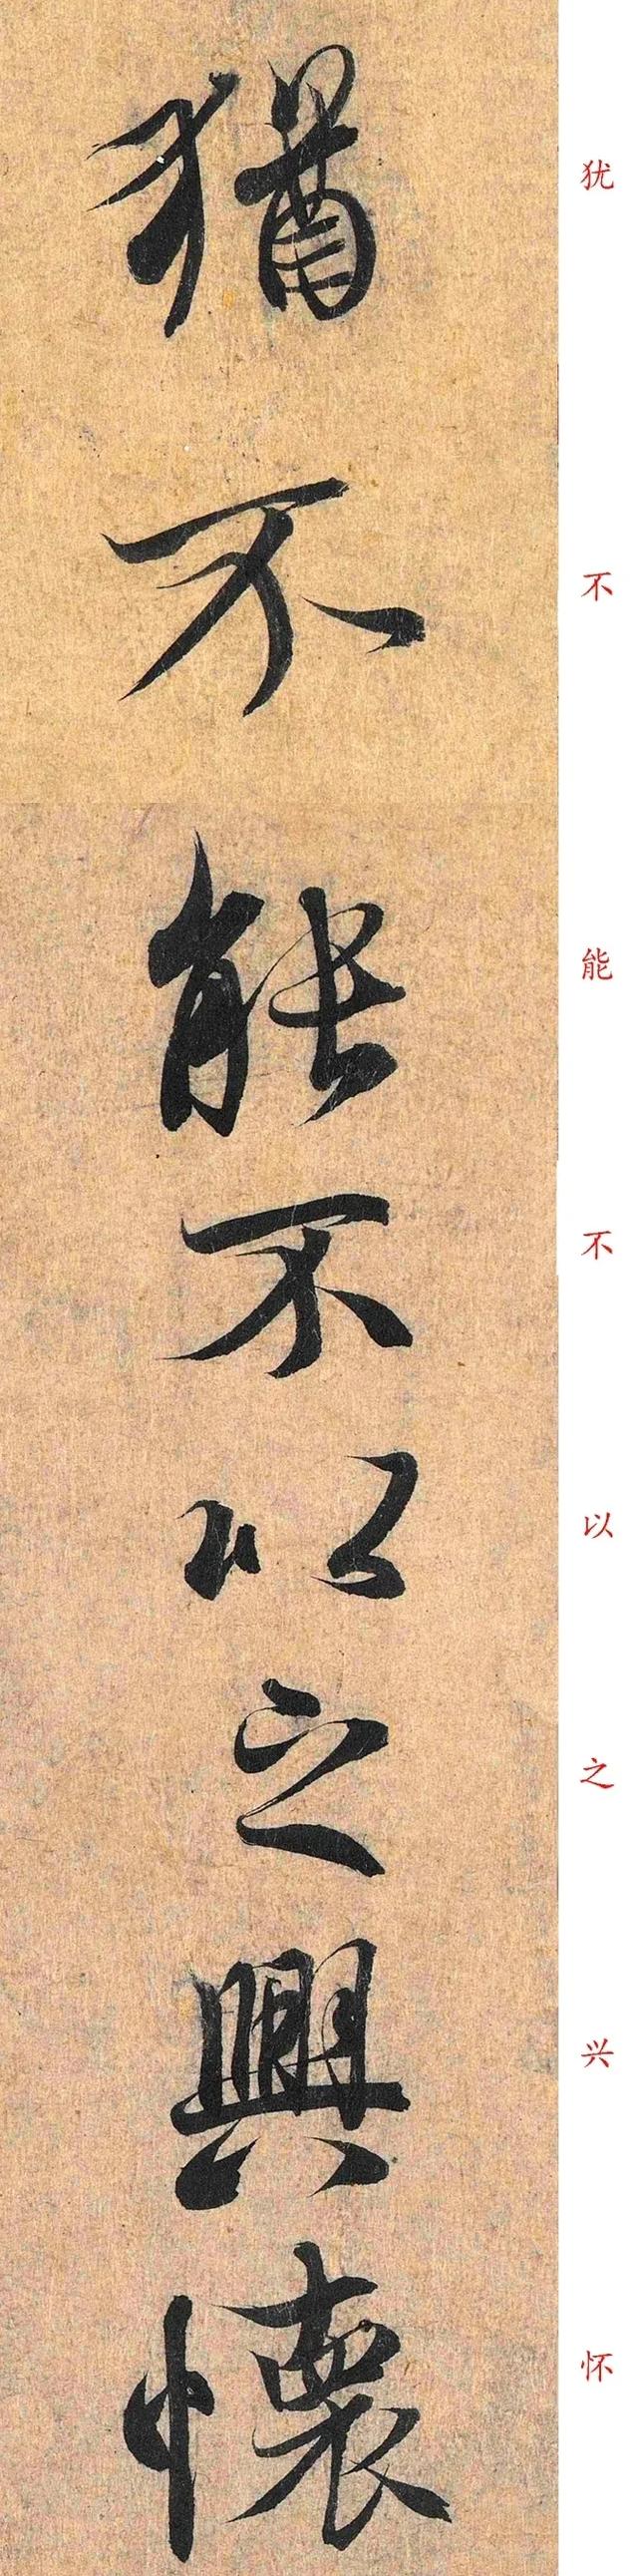 猶不能不以之興懷
犹不能不以之兴怀